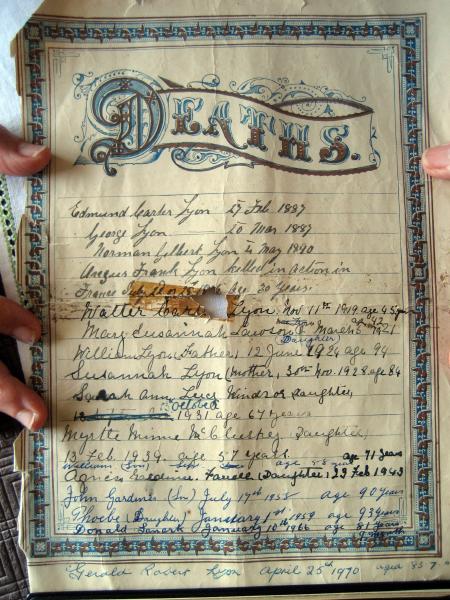 DEATHS.
Edmund Carter Lyon 27 Feb 1887
George Lyon 20 Mar 1887
Norman Gilbert Lyon 4 May 1890
Angus Frank Lyon killed in action in
France age 30 Years
Walter Lyon, Nov 11th 1919 age 45 years
Mary Susannah Lawson March 1921
(Daughter)
William Lyon, Father, 12 June 1924 age 94
Susannah Lyon, Mother, 30th Nov. 1928 age 84
Sarah Ann Lucy Windsor Daughter,
October
1931 age 67 Years
Myrtle Minnie McCluskey, Daughter,
13 Feb 1939. age 57 years. age 71 years
William (Son)
Agnes Gardiner Farrell (Daughter) 22 Feb 1943
John Gardner (Son) July 17th 1958 age 90 years
Phoebe (Daughter) January 1st 1959 age 93 years
Donald January 10th 1966 age 81 years
Gerald Robert Lyon April 25th 1970 aged 83